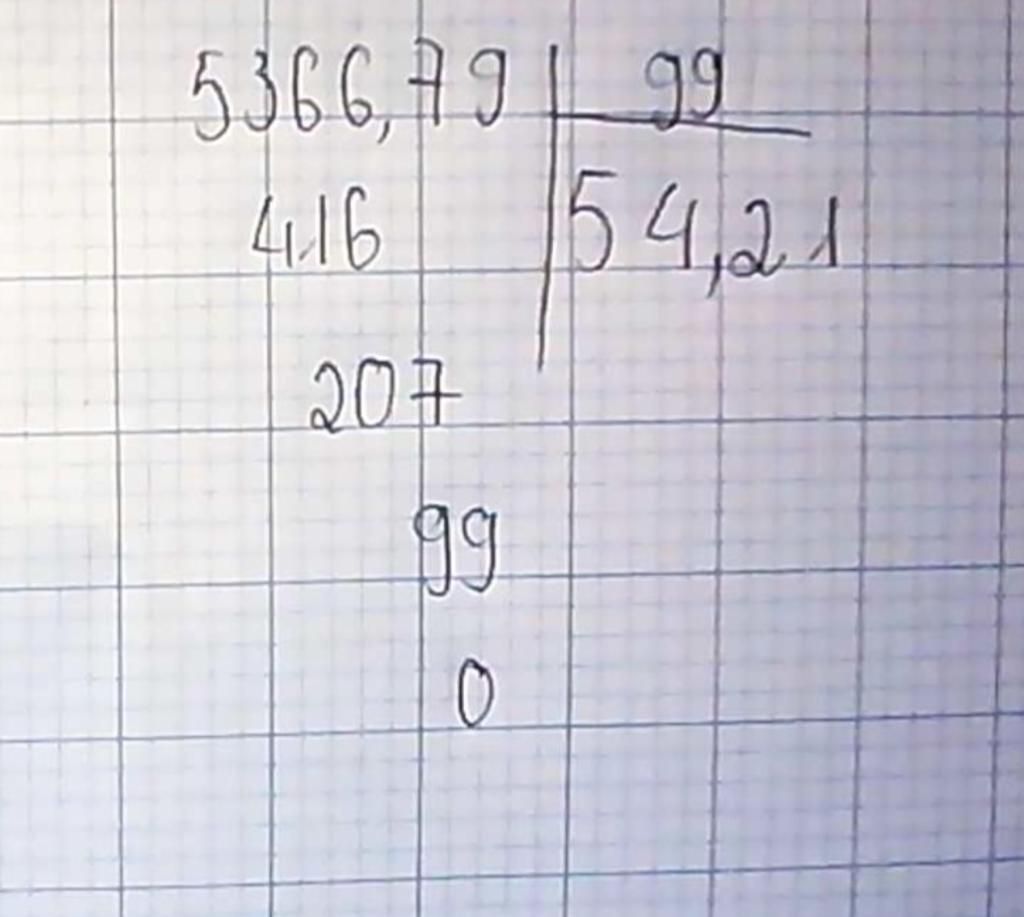 5366,79 | 99
416 | 54,21
207
99
0